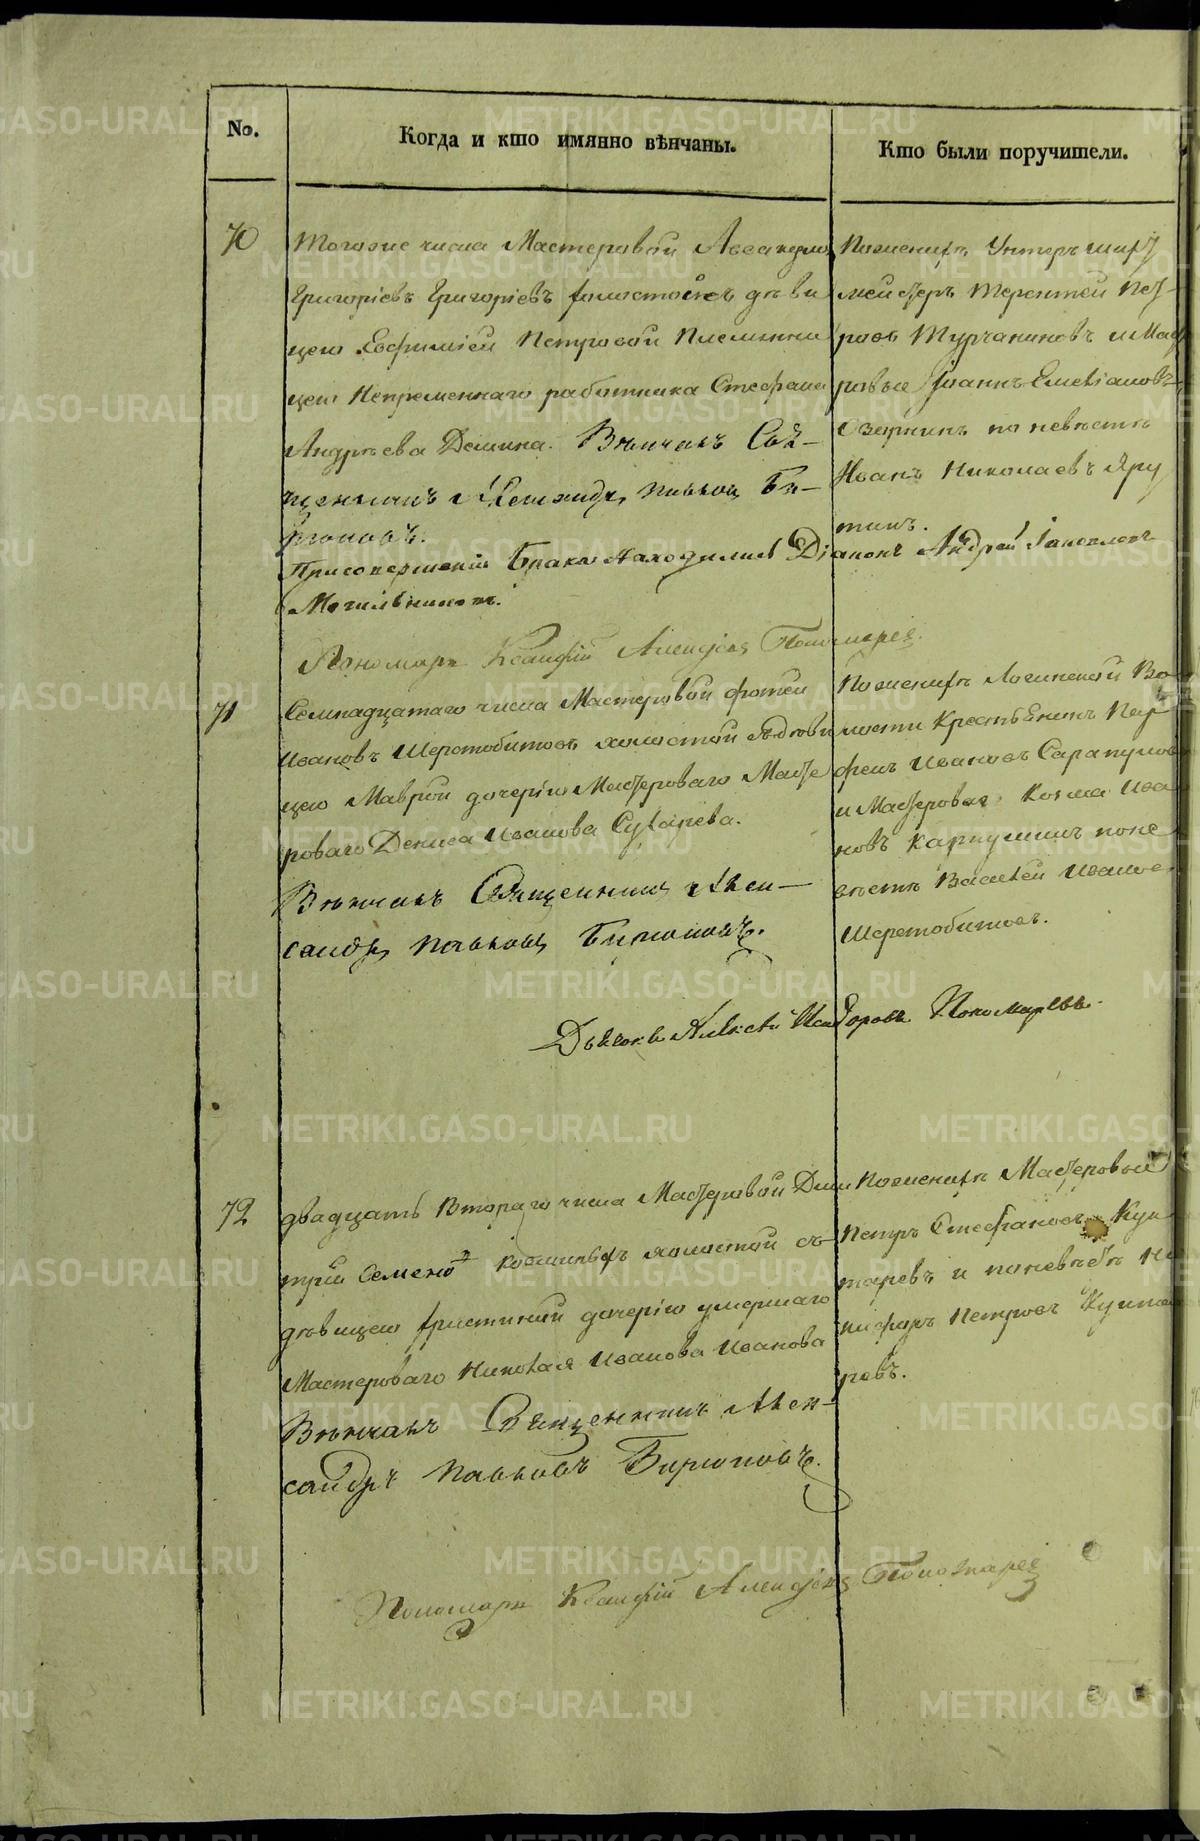 No.
Когда и кто имянно вѣнчаны.
Кто были поручители.
70
Тогоже числа Мастеровой Аввакумъ
Григорьевъ Григорьевъ холостой съ дѣви
цею Евфиміей Петровой Племянни
цею Непременнаго работника Стефана
Андрѣева Демина. Вѣнчалъ Свя-
щенникъ Александръ Павловъ Би-
рюковъ.
Поженихѣ Унтеръ шихт
мейстеръ Терентей Пет-
ровъ Турчаниновъ и Мастеровые Іоаннъ Емельяновъ
Озорнинъ по невѣстѣ
Иванъ Николаевъ Яру
тинъ.
Присовершеніи Брака находились Діаконъ Андрей Іаковлевъ
Могильниковъ.
Пономарь Ксанфій Алексѣевъ Пономаревъ
71
Семнадцатаго числа Мастеровой Фотей
Ивановъ Шерстобитовъ холостой съ дѣви
цею Маврой дочерію Мастероваго Масте
роваго Дениса Иванова Сухарева.
Вѣнчалъ Священникъ Алек-
сандръ Павловъ Бирюковъ.
Поженихѣ Логиновской Во
лости Крестьянинъ Пар
фенъ Ивановъ Сарапулов
и Мастеровые Козма Ива
новъ Карпушинъ поне
вѣстѣ Василей Иванов
Шерстобитовъ.
Дьячокъ Алексѣй Исидоровъ Пономаревъ.
72
двадцать Втораго числа Мастеровой Дми
трій Семено холостой съ
дѣвицею Христиной дочерію умершаго
Мастероваго Николая Иванова Иванова
Вѣнчалъ Священникъ Алек-
сандръ Павловъ Бирюковъ.
Поженихѣ Мастеровые
Петръ Стефановъ Кук
таревъ и поневѣстѣ Ни
кифоръ Петровъ Кукта
ревъ.
Пономарь Ксанфій Алексѣевъ Пономаревъ
METRIKI.GASO-URAL.RU